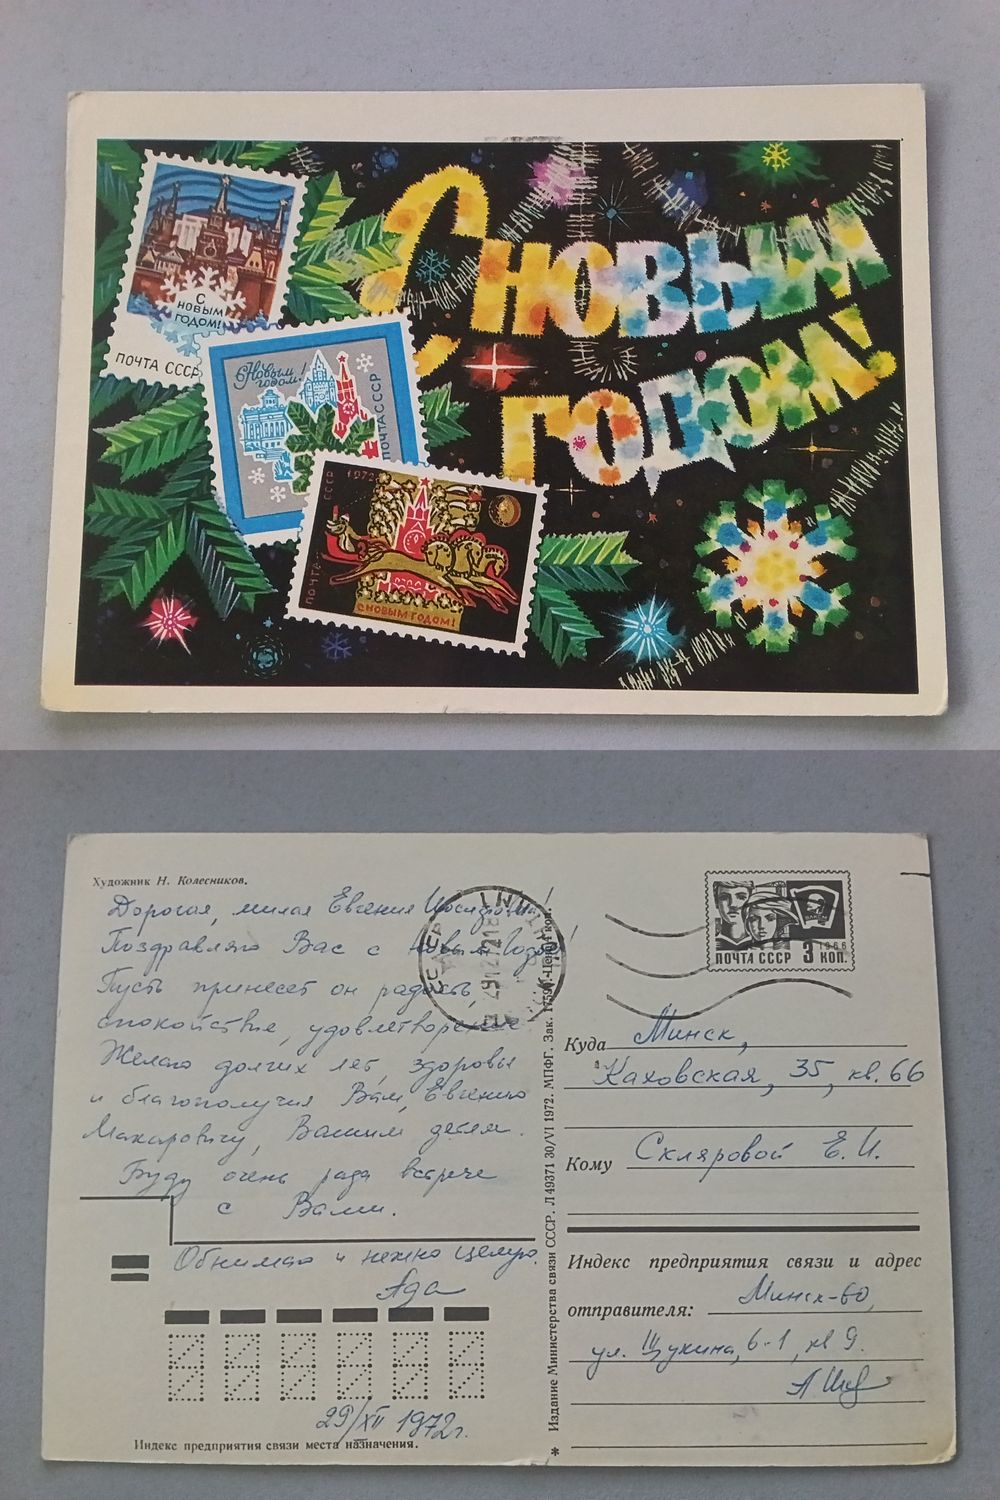 С НОВЫМ
ГОДОМ!
С
НОВЫМ
ГОДОМ!
ПОЧТА СССР
С Новым
годом!
ПОЧТА СССР
ПОЧТА СССР 1972
С НОВЫМ ГОДОМ!
Художник Н. Колесников.
Дорогая, милая Евгения Иосифовна!
Поздравляю Вас с Новым Годом!
Пусть принесет он радость,
спокойствие, удовлетворение
Желаю долгих лет, здоровья
и благополучия Вам, Евгению
Макаровичу, Вашим детям.
Буду очень рада встрече
с Вами.
Обнимаю и нежно целую.
Ада
29/XII 1972г.
Индекс предприятия связи места назначения.
* Издание Министерства связи СССР. Л 49371 30/VI 1972. МПФГ. Зак. Цена 4 коп.
ПОЧТА СССР 3 КОП.
1966
Куда Минск,
Каховская, 35, кв. 66
Кому Скляровой Е. И.
Индекс предприятия связи и адрес
отправителя: Минск-60,
ул. Щукина, 6-1, кв 9.